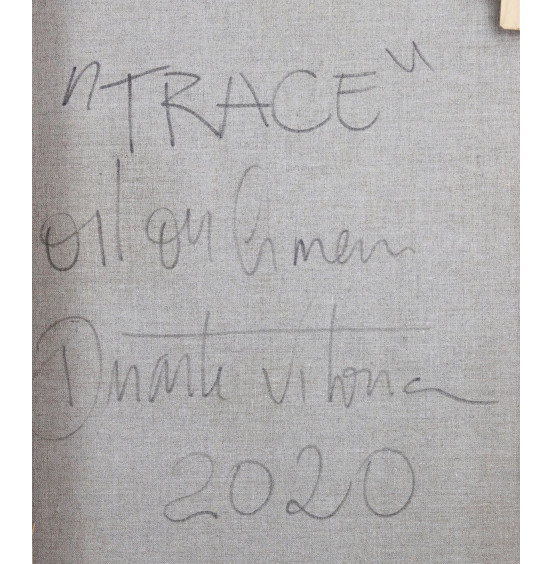 "TRACE"
oil on linen
Duarte Vitoria
2020